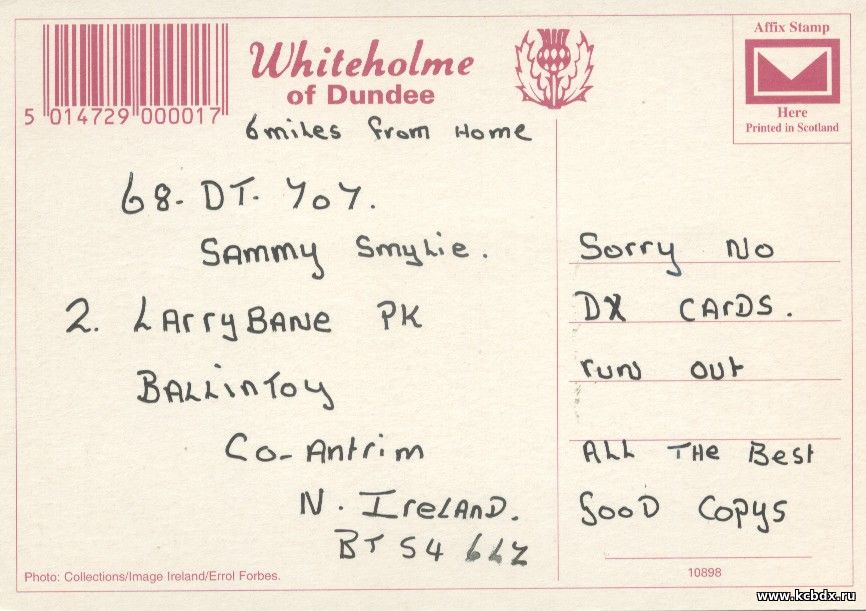 5 014729 000017
Whiteholme
of Dundee
Affix Stamp
Here
Printed in Scotland
6 miles from Home
68-DT-707.
Sammy Smylie.
2. LArryBANe PK
BALLinToy
Co-Antrim
N. IreLAND.
BT54 6LZ
Sorry No
DX CArDS.
runs out
ALL THe Best
Good Copys
Photo: Collections/Image Ireland/Errol Forbes.
10898
www.kcbdx.ru